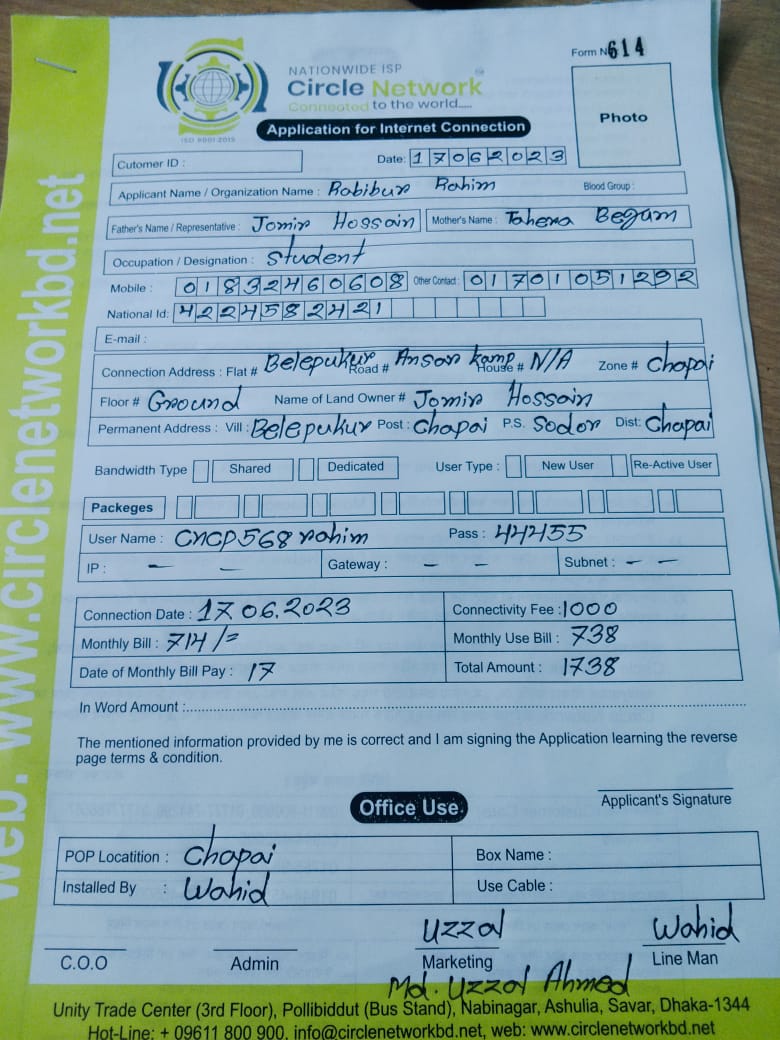 NATIONWIDE ISP
Circle Network
Connected to the world.....
ISO 9001:2015
Form No 614
Photo
Application for Internet Connection
Cutomer ID :
Date: 17062023
Applicant Name / Organization Name : Robibur Rohim Blood Group :
Father's Name / Representative : Jomir Hossain Mother's Name : Tahera Begam
Occupation / Designation : Student
Mobile : 01832460608 Other Contact : 01701051292
National Id: 4224582421
E-mail :
Connection Address : Flat # Belepukur Road # Ansar kamp House # N/A Zone # Chapai
Floor # Ground Name of Land Owner # Jomir Hossain
Permanent Address : Vill : Belepukur Post : Chapai P.S. Sodor Dist: Chapai
Bandwidth Type Shared Dedicated User Type : New User Re-Active User
Packeges
User Name : cncp568rohim Pass : 44455
IP : — — Gateway : — — Subnet : — —
Connection Date : 17.06.2023 Connectivity Fee : 1000
Monthly Bill : 714/= Monthly Use Bill : 738
Date of Monthly Bill Pay : 17 Total Amount : 1738
In Word Amount :
The mentioned information provided by me is correct and I am signing the Application learning the reverse
page terms & condition.
Applicant's Signature
Office Use
POP Locatition : Chapai Box Name :
Installed By : Wahid Use Cable :
Uzzal Wahid
C.O.O Admin Marketing Line Man
Md. Uzzal Ahmed
Unity Trade Center (3rd Floor), Pollibiddut (Bus Stand), Nabinagar, Ashulia, Savar, Dhaka-1344
Hot-Line: + 09611 800 900, info@circlenetworkbd.net, web: www.circlenetworkbd.net
web: www.circlenetworkbd.net